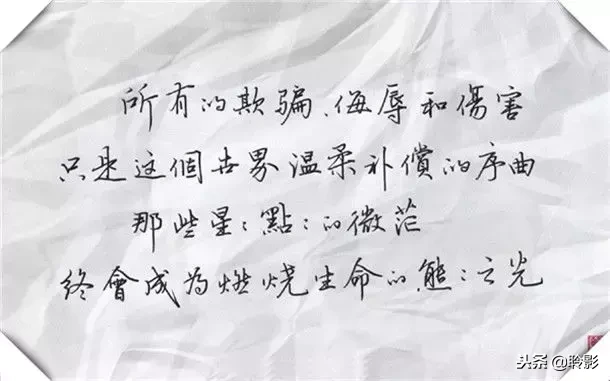 所有的欺骗、侮辱和傷害
只是这個世界温柔补償的序曲
那些星:點:的微茫
终會成为燃烧生命的熊:之光
头条@聆影